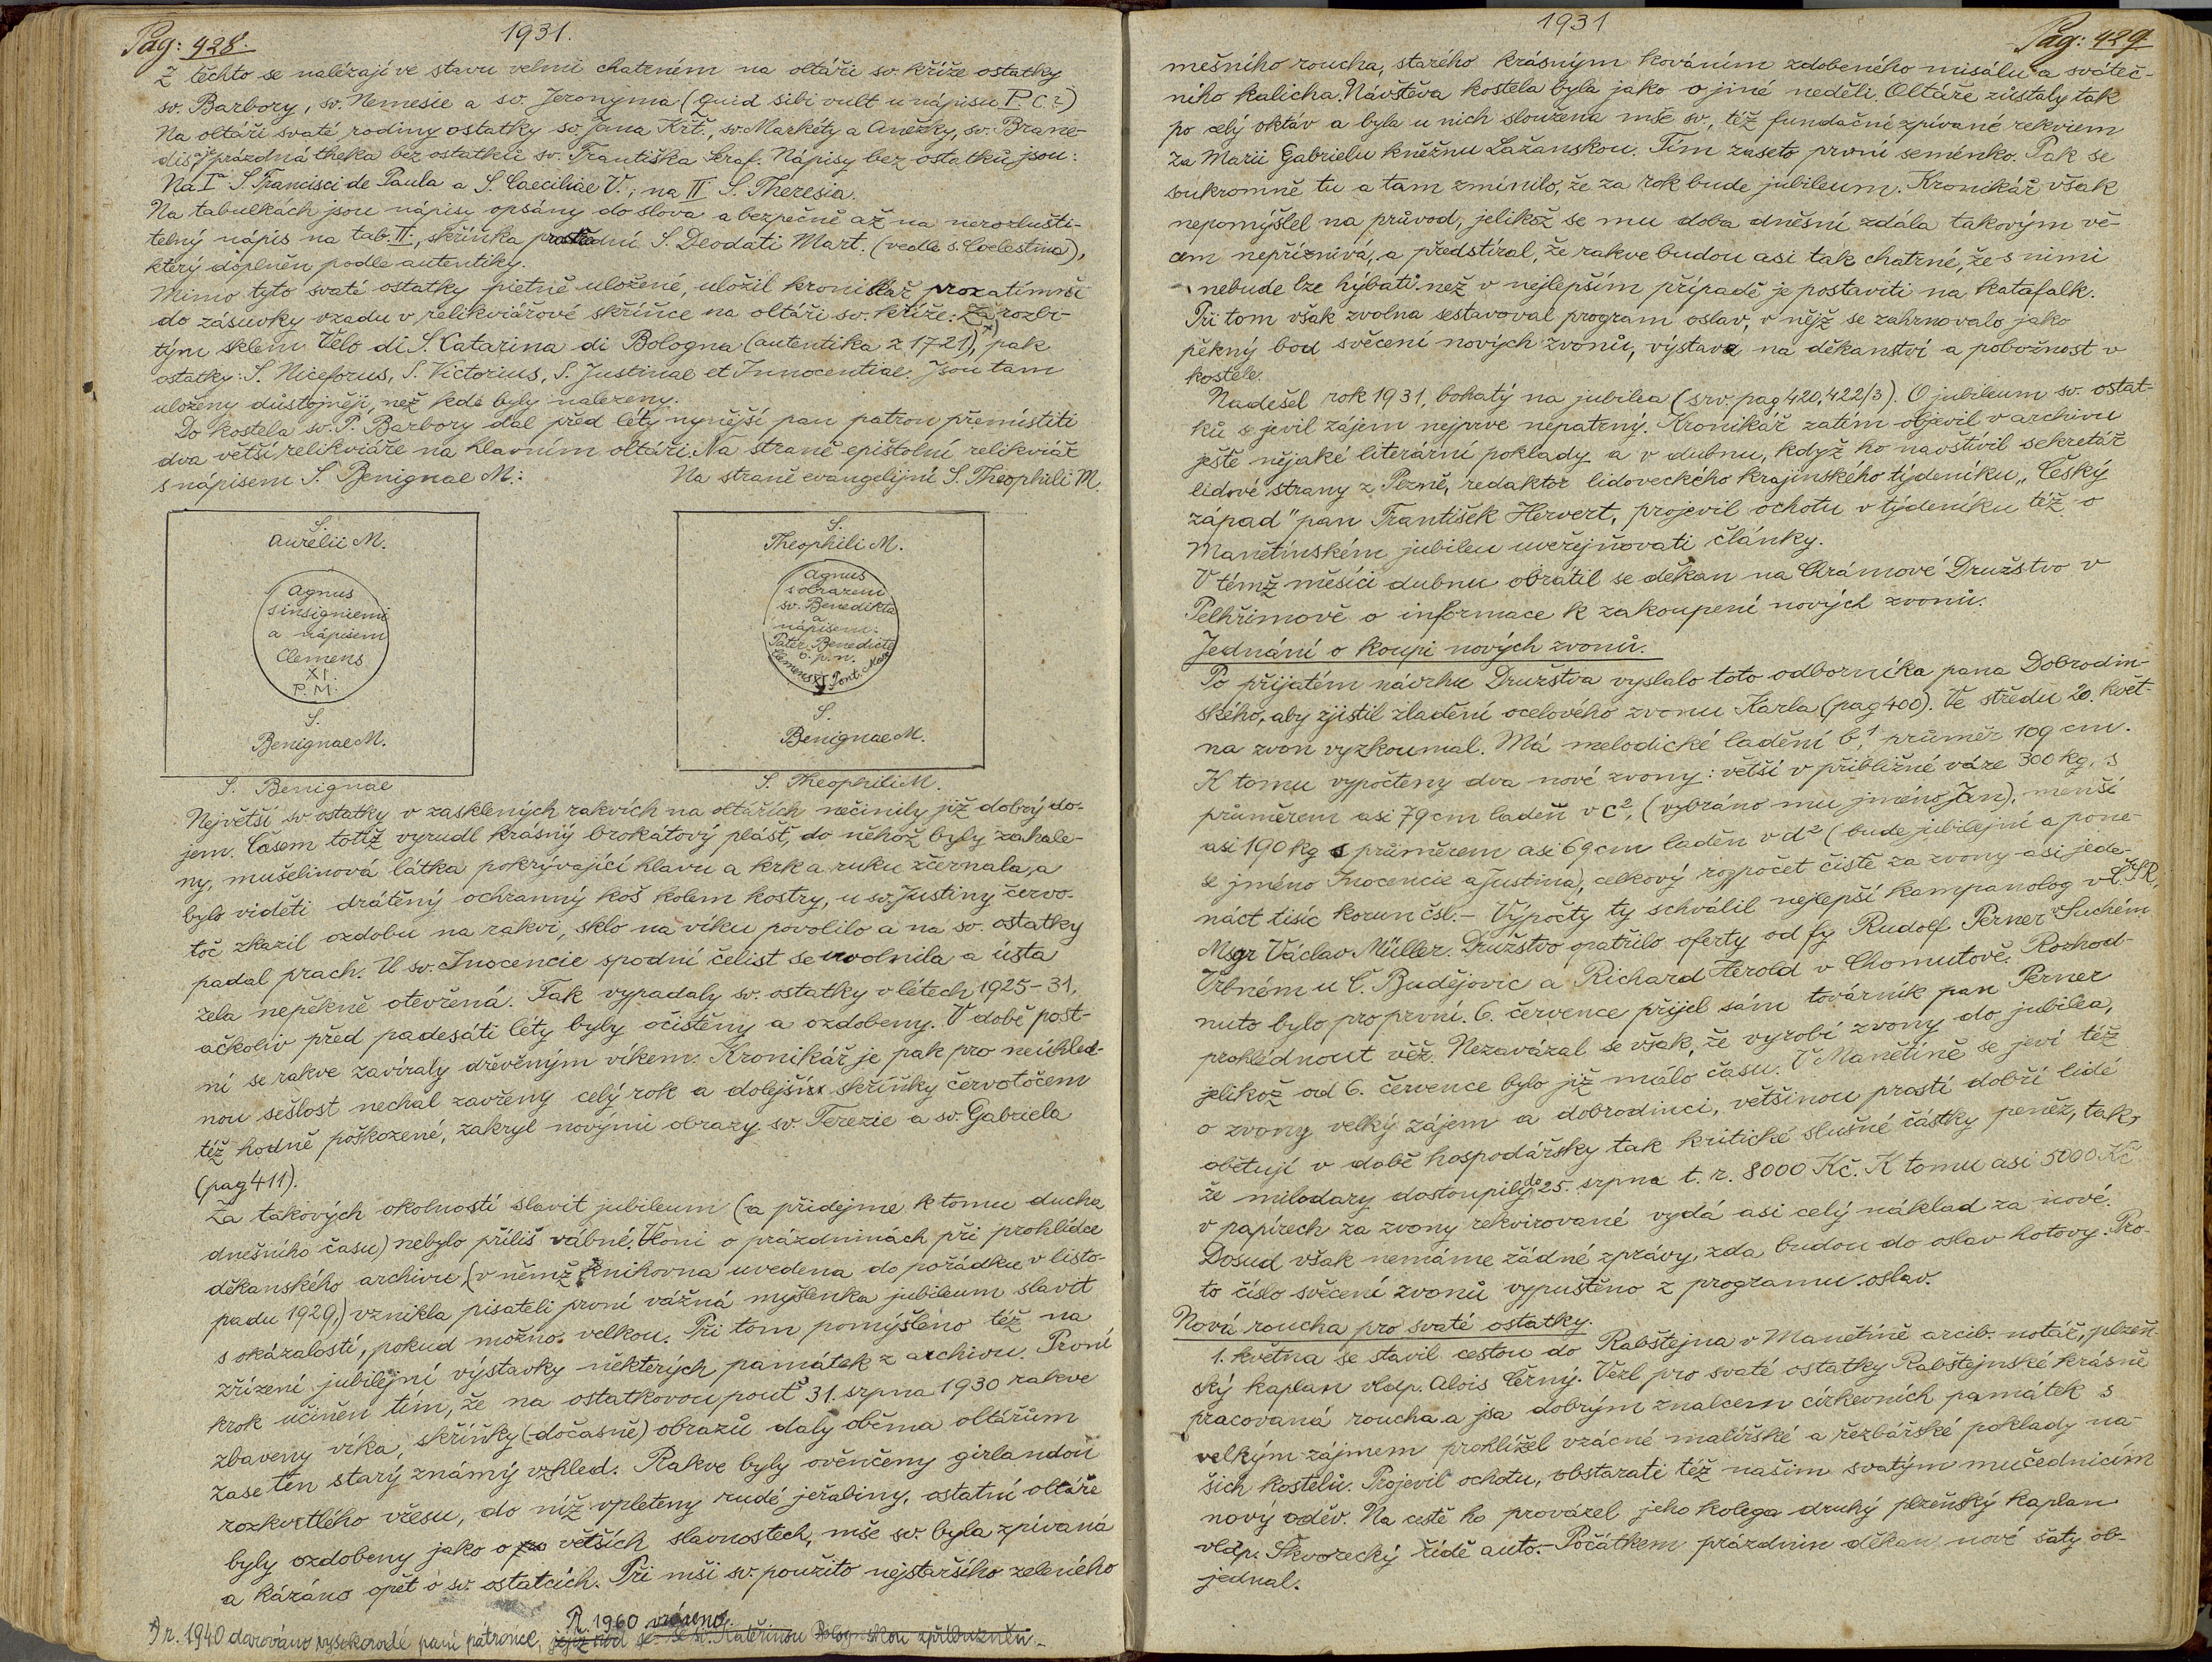 Pag: 428.
1931.
Z těchto se nalézají ve stavu velmi chatrném na oltáři sv. kříže ostatky
sv. Barbory, sv. Nemesie a sv. Jeronyma (quid sibi vult u nápisu P. C.?)
Na oltáři svaté rodiny ostatky sv. Jana Křt., sv. Markéty a Anežky, sv. Brane-
dis, je prázdná theka bez ostatků sv. Františka Seraf. Nápisy bez ostatků jsou:
Na I S. Francisci de Paula a S. Caeciliae V., na II S. Theresia.
Na tabulkách jsou nápisy opsány do slova a bezpečně až na nerozlušti-
telný nápis na tab. II., skřínka prostřední S. Deodati Mart. (vedle s. Coelestina),
který doplněn podle autentiky.
Mimo tyto svaté ostatky pietně uložené, uložil kronikář prozatímně
do zásuvky vzadu v relikviářové skříňce na oltáři sv. kříže: Za rozbi-
tým sklem Velo di S. Catarina di Bologna (autentika z 1721), x) pak
ostatky: S. Niceforus, S. Victorius, S. Justinae et Innocentiae. Jsou tam
uloženy důstojněji, než kde byly nalezeny.
Do kostela sv. P. Barbory dal před léty nynější pan patron přemístiti
dva větší relikviáře na hlavním oltáři. Na straně epištolní relikviář
s nápisem S. Benignae M.:
Na straně evangelijní S. Theophili M.
S.
Aurelii M.
Agnus
s insigniemi
a nápisem
Clemens
XI.
P. M.
S.
Benignae M.
S. Benignae
S.
Theophili M.
Agnus
s obrazem
sv. Benedikta
a
nápisem:
Pater Benedicte
o. p. n.
Clemens XI Pont. Max
S.
Benignae M.
S. Theophili M.
Největší sv. ostatky v zasklených rakvích na oltářích nečinily již dobrý do-
jem. Časem totiž vyrudl krásný brokátový plášť, do něhož byly zahale-
ny, mušelinová látka pokrývající hlavu a krk a ruku zčernala, a
bylo viděti drátěný ochranný koš kolem kostry, u sv. Justiny červo-
toč zkazil ozdobu na rakvi, sklo na víku povolilo a na sv. ostatky
padal prach. U sv. Inocencie spodní čelist se uvolnila a ústa
zela nepěkně otevřená. Tak vypadaly sv. ostatky v létech 1925-31,
ačkoliv před padesáti léty byly očištěny a ozdobeny. V době post-
ní se rakve zavíraly dřevěným víkem. Kronikář je pak pro neúhled-
nou sešlost nechal zavřeny celý rok a dolejší skříňky červotočem
též hodně poškozené, zakryl novými obrazy sv. Terezie a sv. Gabriela
(pag 411).
Za takových okolností slavit jubileum (a přidejme k tomu ducha
dnešního času) nebylo příliš vábné. Vloni o prázdninách při prohlídce
děkanského archivu, (v němž knihovna uvedena do pořádku v listo-
padu 1929,) vznikla pisateli první vážná myšlenka jubileum slavit
s okázalostí, pokud možno velkou. Při tom pomýšleno též na
zřízení jubilejní výstavky některých památek z archivu. První
krok učiněn tím, že na ostatkovou pouť 31. srpna 1930 rakve
zbaveny víka, skříňky (dočasně) obrazů daly oběma oltářům
zase ten starý známý vzhled. Rakve byly ověnčeny girlandou
rozkvetlého vřesu, do níž vpleteny rudé jeřabiny, ostatní oltáře
byly ozdobeny jako o větších slavnostech, mše sv. byla zpívaná
a kázáno opět o sv. ostatcích. Při mši sv. použito nejstaršího zeleného
R. 1960 vráceno.
x) r. 1940 darováno vysokorodé paní patronce, jejíž rod se se sv. Kateřinou Bolognskou zpříbuzněn.
1931
Pag: 429
mešního roucha, starého krásným kováním zdobeného misálu a sváteč-
ního kalicha. Návštěva kostela byla jako o jiné neděli. Oltáře zůstaly tak
po celý oktáv a byla u nich sloužena mše sv., též fundační zpívané rekviem
za Marii Gabrielu kněžnu Lažanskou. Tím zaseto první seménko. Pak se
soukromně tu a tam zmínilo, že za rok bude jubileum. Kronikář však
nepomýšlel na průvod, jelikož se mu doba dněsní zdála takovým vě-
cem nepříznivá, a předstíral, že rakve budou asi tak chatrné, že s nimi
nebude lze hýbati než v nejlepším případě je postaviti na katafalk.
Při tom však zvolna sestavoval program oslav, v nějž se zahrnovalo jako
pěkný bod svěcení nových zvonů, výstava na děkanství a pobožnost v
kostele.
Nadešel rok 1931, bohatý na jubilea (srv. pag 420, 422/3). O jubileum sv. ostat-
ků se jevil zájem nejprve nepatrný. Kronikář zatím objevil v archivu
ještě nějaké literární poklady a v dubnu, když ho navštívil sekretář
lidové strany z Plzně, redaktor lidoveckého krajinského týdeníku „Český
západ" pan František Hervert, projevil ochotu v týdeníku též o
Manětínském jubileu uveřejňovati články.
V témž měsíci dubnu obrátil se děkan na Chrámové Družstvo v
Pelhřimově o informace k zakoupení nových zvonů.
Jednání o koupi nových zvonů.
Po přijatém návrhu Družstva vyslalo toto odborníka pana Dobrodin-
ského, aby zjistil zladění ocelového zvonu Karla (pag 400). Ve středu 20. květ-
na zvon vyzkoumal. Má melodické ladění b¹, průměr 109 cm.
K tomu vypočteny dva nové zvony: větší v přibližné váze 300 kg, s
průměrem asi 79 cm laděn v c², (vybráno mu jméno Jan), menší
asi 190 kg s průměrem asi 69 cm laděn v d² (bude jubilejní a pone-
se jméno Inocencie a Justina), celkový rozpočet čistě za zvony asi jede-
náct tisíc korun čsl.- Výpočty ty schválil nejlepší kampanolog v Č.S.R.,
Msgr Václav Müller. Družstvo opatřilo oferty od fy Rudolf Perner v Suchém
Vrbném u Č. Budějovic a Richard Herold v Chomutově. Rozhod-
nuto bylo pro první. 6. července přijel sám továrník pan Perner
prohlédnout věž. Nezavázal se však, že vyrobí zvony do jubilea,
jelikož od 6. července bylo již málo času. V Manětíně se jeví též
o zvony velký zájem a dobrodinci, většinou prostí dobří lidé
obětují v době hospodářsky tak kritické slušné částky peněz, tak,
že milodary dostoupily do 25. srpna t. r. 8000 Kč. K tomu asi 5000 Kč
v papírech za zvony rekvirované vydá asi celý náklad za nové.
Dosud však nemáme žádné zprávy, zda budou do oslav hotovy. Pro-
to číslo svěcení zvonů vypuštěno z programu oslav.
Nová roucha pro svaté ostatky.
1. května se stavil cestou do Rabštejna v Manětíně arcib. notář, plzeň-
ský kaplan vldp. Alois Černý. Vezl pro svaté ostatky Rabštejnské krásně
pracovaná roucha a jsa dobrým znalcem církevních památek s
velkým zájmem prohlížel vzácné malířské a řezbářské poklady na-
šich kostelů. Projevil ochotu, obstarati též našim svatým mučednicím
nový oděv. Na cestě ho provázel jeho kolega druhý plzeňský kaplan
vldp. Skvorecký řídě auto.- Počátkem prázdnin děkan nové šaty ob-
jednal.